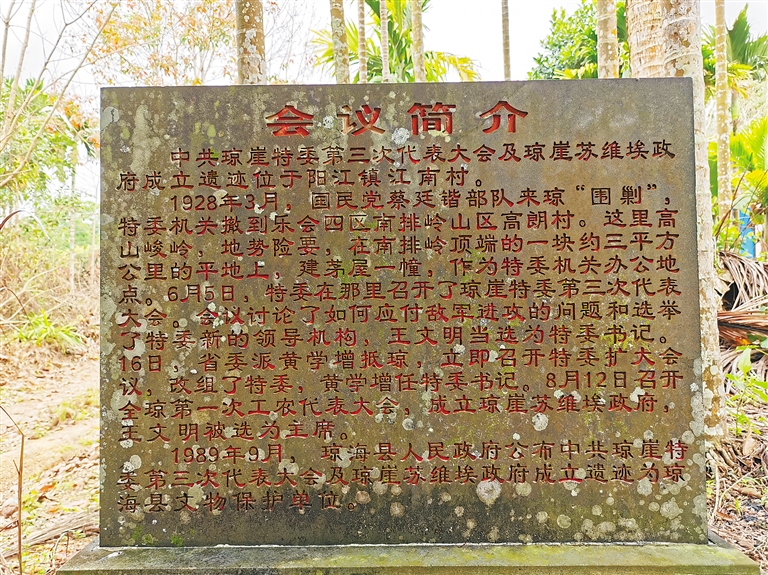 会议简介
中共琼崖特委第三次代表大会及琼崖苏维埃政
府成立遗迹位于阳江镇江南村。
1928年3月，国民党蔡廷锴部队来琼“围剿”，
特委机关撤到乐会四区南排岭山区高朗村。这里高
山峻岭，地势险要，在南排岭顶端的一块约三平方
公里的平地上，建茅屋一幢，作为特委机关办公地
点。6月5日，特委在那里召开了琼崖特委第三次代表
大会。会议讨论了如何应付敌军进攻的问题和选举
了特委新的领导机构，王文明当选为特委书记。
16日，省委派黄学增抵琼，立即召开特委扩大会
议，改组了特委，黄学增任特委书记。8月12日召开
全琼第一次工农代表大会，成立琼崖苏维埃政府，
王文明被选为主席。
1989年9月，琼海县人民政府公布中共琼崖特
委第三次代表大会及琼崖苏维埃政府成立遗迹为琼
海县文物保护单位。